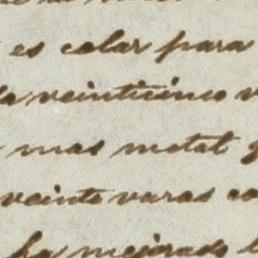 es colar para
veinticinco
mas metal
veinte varas
ha mejorado